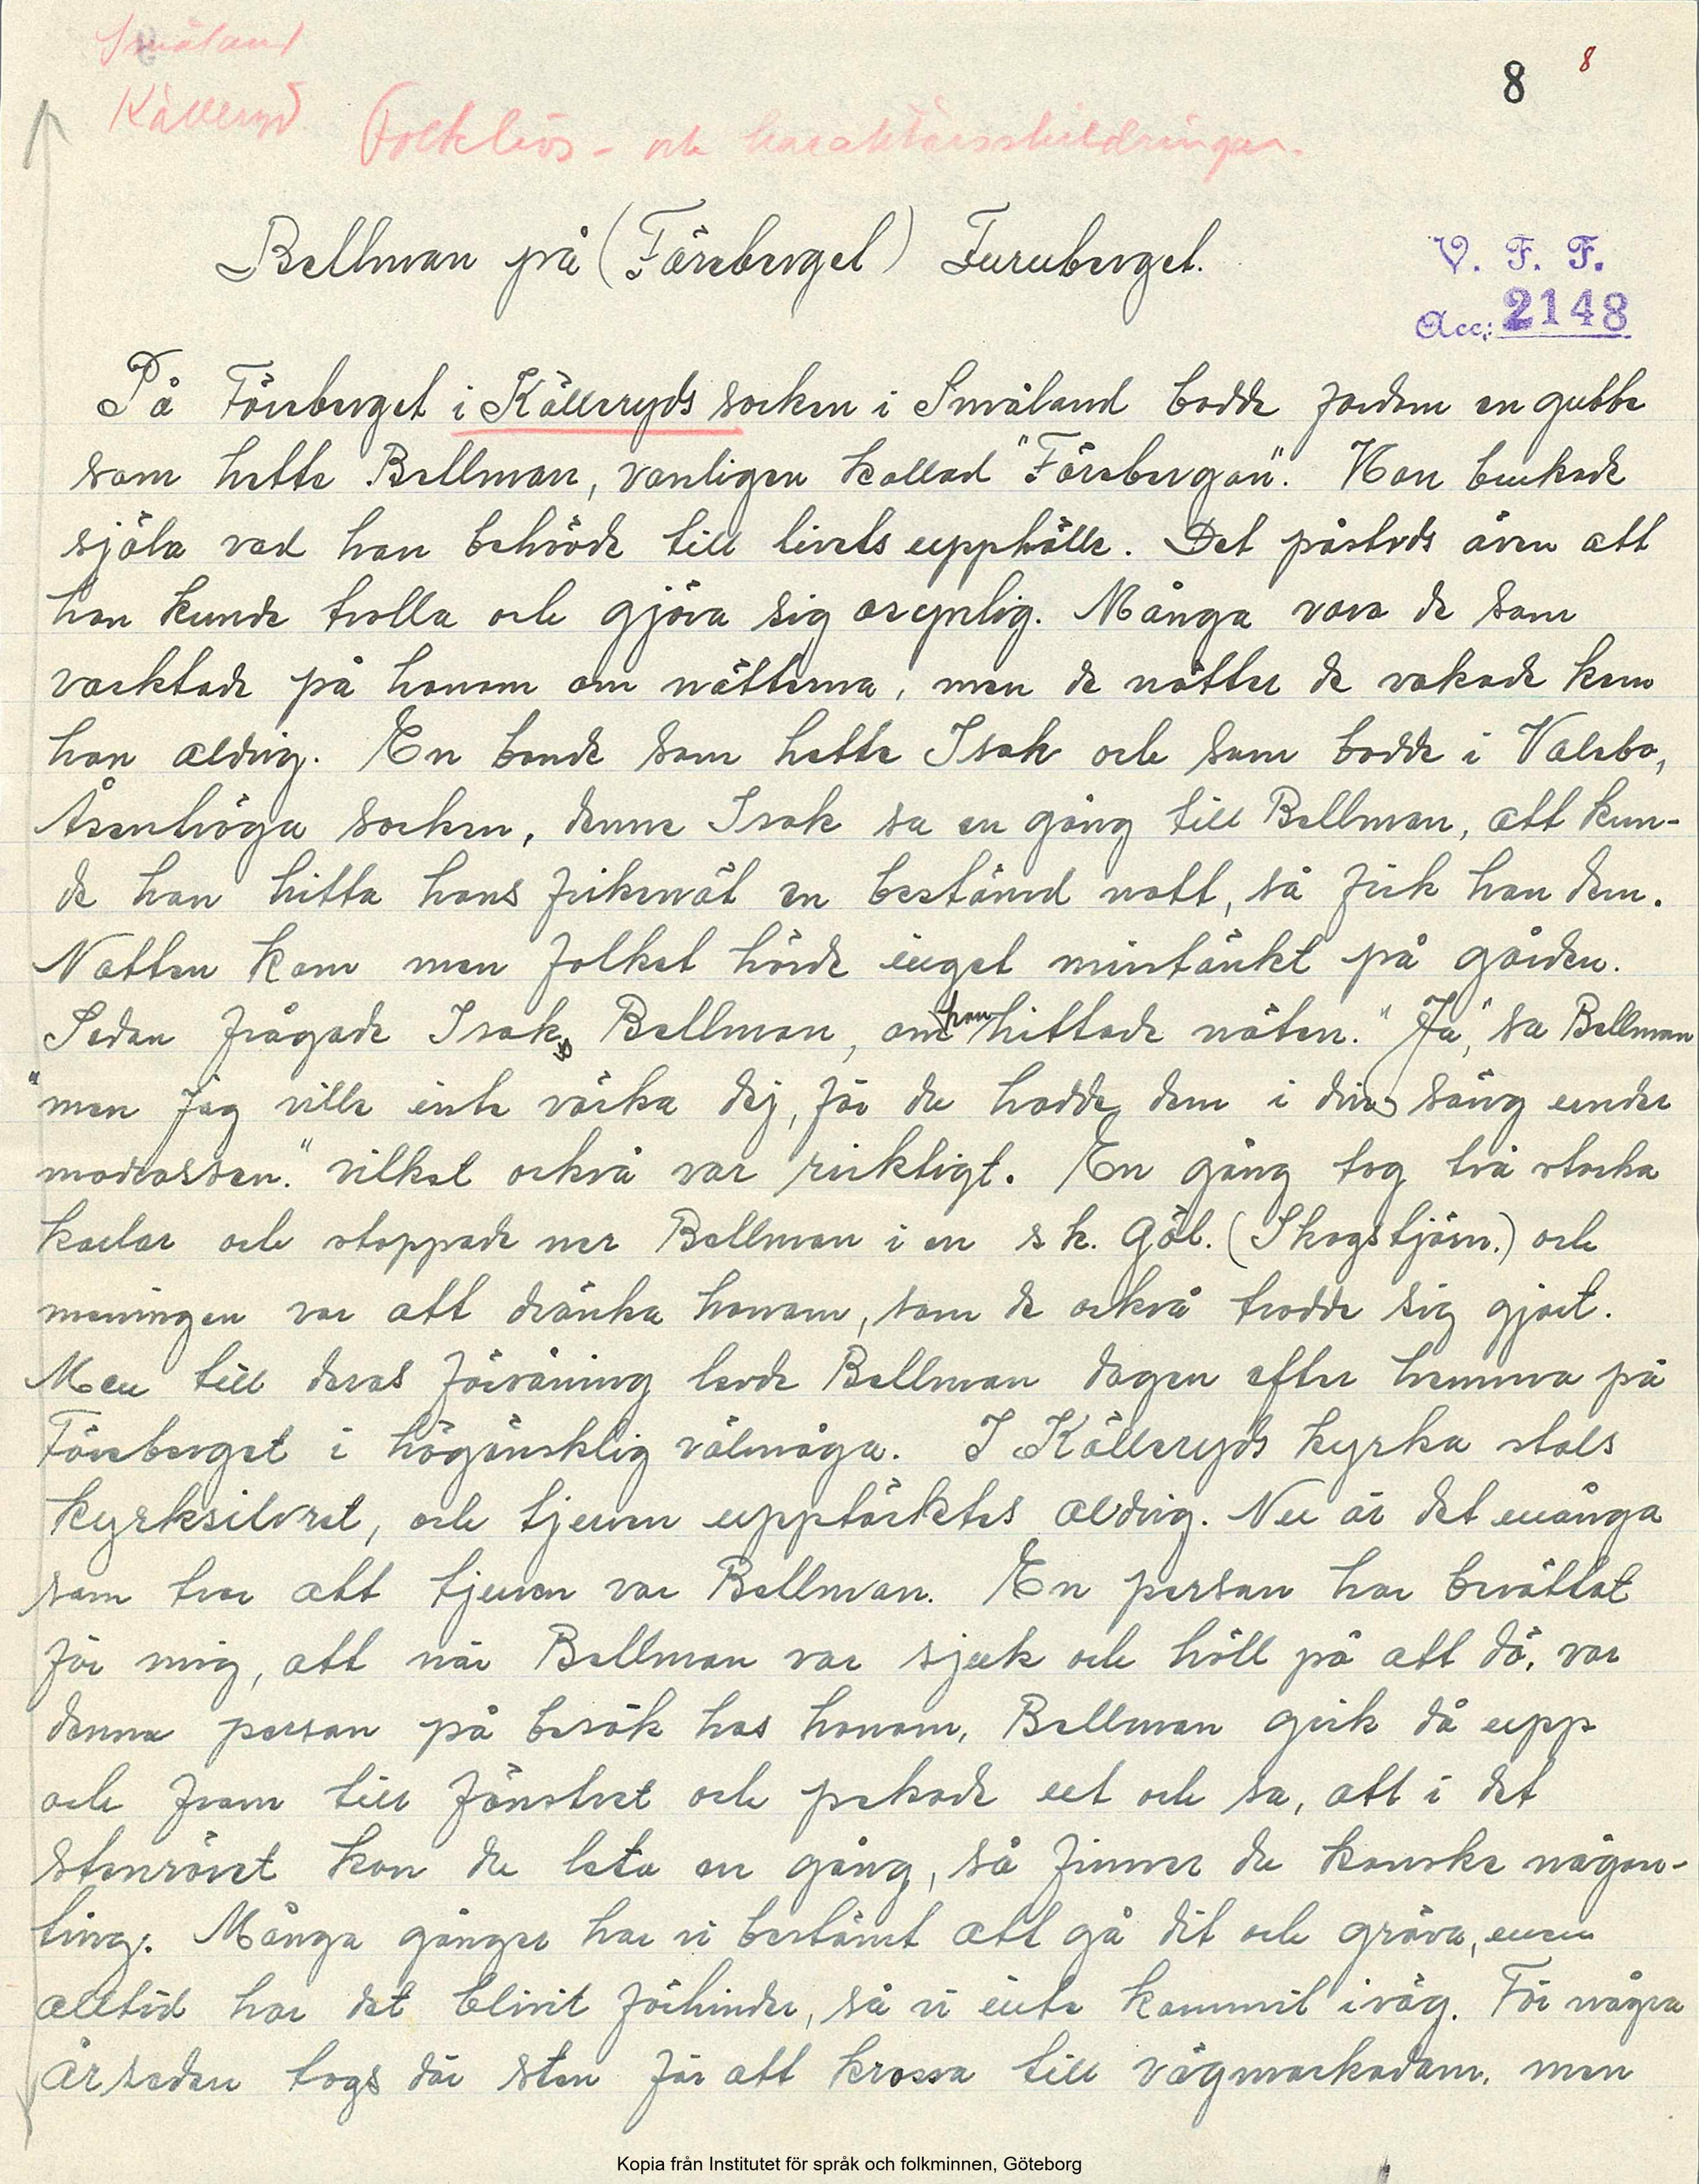 Småland
8 8
Källeryd
Folklivs- och karaktärsskildringar.
Bellman på (Föreberget) Furuberget.
V. F. F.
Acc: 2148
På Föreberget i Källeryds socken i Småland bodde fordom en gubbe
som hette Bellman, vanligen kallad "Förebergan". Han brukade
själa vad han behövde till livets upphälle. Det påstods även att
han kunde trolla och gjöra sig osynlig. Många voro de som
vacktade på honom om nätterna, men de nätter de vakade kom
han aldrig. En bonde som hette Isak och som bodde i Valebo,
Åsenhöga socken, denne Isak sa en gång till Bellman, att kun-
de han hitta hans fiskenät en bestämd natt, så fick han dem.
Natten kom men folket hörde inget mistänkt på gården.
Sedan frågade Isak Bellman, om han hittade näten. "Ja", sa Bellman
"men jag ville inte väcka dig, för du hadde dem i din säng under
madrassen." vilket också var ricktigt. En gång tog två starka
karlar och stoppade ner Bellman i en s k. Göl. (Skogstjärn.) och
meningen var att dränka honom, som de också trodde sig gjort.
Men till deras förvåning levde Bellman dagen efter hemma på
Föreberget i högönsklig välmåga. I Källeryds kyrka stals
kyrksilvret, och tjuven upptäcktes aldrig. Nu är det många
som tror att tjuven var Bellman. En person har berättat
för mig, att när Bellman var sjuk och höll på att dö, var
denna person på besök hos honom, Bellman gick då upp
och fram till fönstret och pekade ut och sa, att i det
stenröset kan du leta en gång, så finner du kanske någon-
ting. Många gånger har vi bestämt att gå dit och gräva, men
alltid har det blivit förhinder, så vi inte kommit iväg. För några
år sedan togs där sten för att krossa till vägmackadam, men
Kopia från Institutet för språk och folkminnen, Göteborg